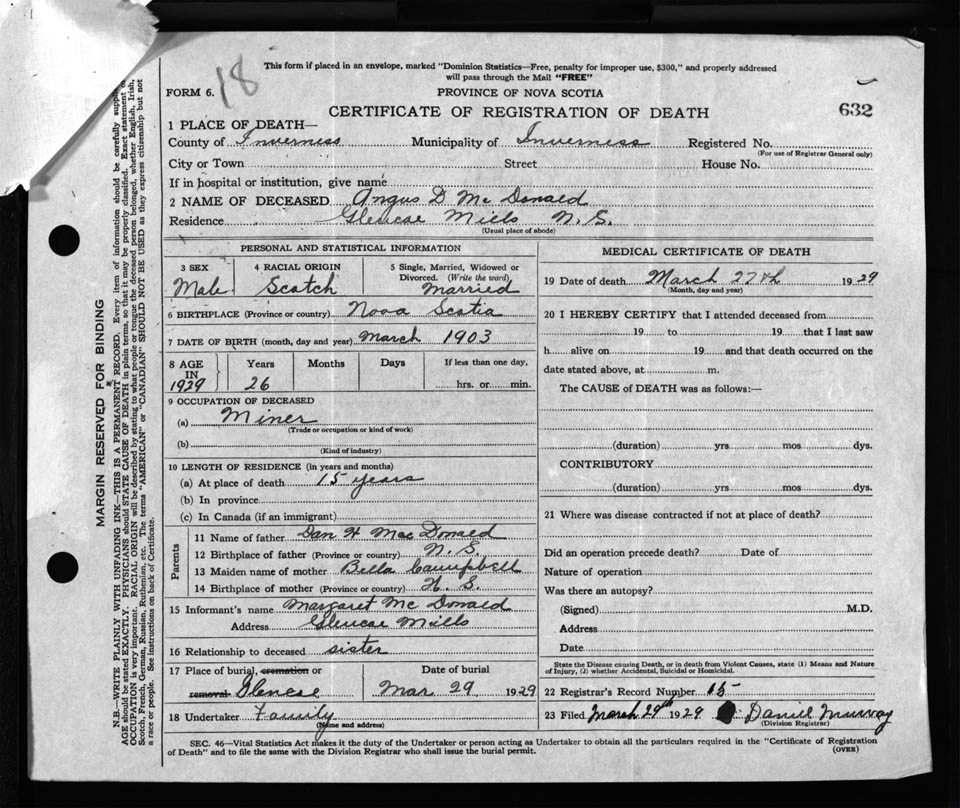 18
This form if placed in an envelope, marked "Dominion Statistics—Free, penalty for improper use, $300," and properly addressed
will pass through the Mail "FREE"
FORM 6.
PROVINCE OF NOVA SCOTIA
CERTIFICATE OF REGISTRATION OF DEATH
632
1 PLACE OF DEATH—
County of Inverness Municipality of Inverness Registered No.
(For use of Registrar General only)
City or Town Street House No.
If in hospital or institution, give name
2 NAME OF DECEASED Angus D McDonald
Residence Glencoe Mills N.S.
(Usual place of abode)
PERSONAL AND STATISTICAL INFORMATION
3 SEX 4 RACIAL ORIGIN 5 Single, Married, Widowed or
Divorced. (Write the word)
Male Scotch Married
6 BIRTHPLACE (Province or country) Nova Scotia
7 DATE OF BIRTH (month, day and year) March 1903
8 AGE Years Months Days If less than one day,
IN
1929 26 hrs. or min.
9 OCCUPATION OF DECEASED
(a) Miner
(Trade or occupation or kind of work)
(b)
(Kind of industry)
10 LENGTH OF RESIDENCE (in years and months)
(a) At place of death 15 years
(b) In province
(c) In Canada (if an immigrant)
Parents
11 Name of father Dan H MacDonald
12 Birthplace of father (Province or country) N.S.
13 Maiden name of mother Bella Campbell
14 Birthplace of mother (Province or country) N.S.
15 Informant's name Margaret McDonald
Address Glencoe Mills
16 Relationship to deceased sister
17 Place of burial, cremation or Date of burial
removal Glencoe Mar 29 1929
18 Undertaker Family
(Name and address)
MEDICAL CERTIFICATE OF DEATH
19 Date of death March 27th 1929
(Month, day and year)
20 I HEREBY CERTIFY that I attended deceased from
19 to 19 that I last saw
h alive on 19 and that death occurred on the
date stated above, at m.
The CAUSE of DEATH was as follows:—
(duration) yrs mos dys.
CONTRIBUTORY
(duration) yrs mos dys.
21 Where was disease contracted if not at place of death?
Did an operation precede death? Date of
Nature of operation
Was there an autopsy?
(Signed) M.D.
Address
Date
State the Disease causing Death, or in death from Violent Causes, state (1) Means and Nature
of Injury, (2) whether Accidental, Suicidal or Homicidal.
22 Registrar's Record Number 15
23 Filed March 29th 1929 Daniel Murray
(Division Registrar)
SEC. 46—Vital Statistics Act makes it the duty of the Undertaker or person acting as Undertaker to obtain all the particulars required in the "Certificate of Registration
of Death" and to file the same with the Division Registrar who shall issue the burial permit. (OVER)
MARGIN RESERVED FOR BINDING
N.B.—WRITE PLAINLY WITH UNFADING INK—THIS IS A PERMANENT RECORD. Every item of information should be carefully
AGE should be stated EXACTLY. PHYSICIANS should STATE CAUSE OF DEATH in plain terms, so that it may be properly classified. Exact statement
OCCUPATION is very important. RACIAL ORIGIN will be described by stating to what people or tongue the deceased person belonged, whether English, Irish,
Scotch, French, German, Russian, Ruthenian, etc. The terms "AMERICAN" or "CANADIAN" SHOULD NOT BE USED as they express citizenship but not
a race or people. See instructions on back of Certificate.